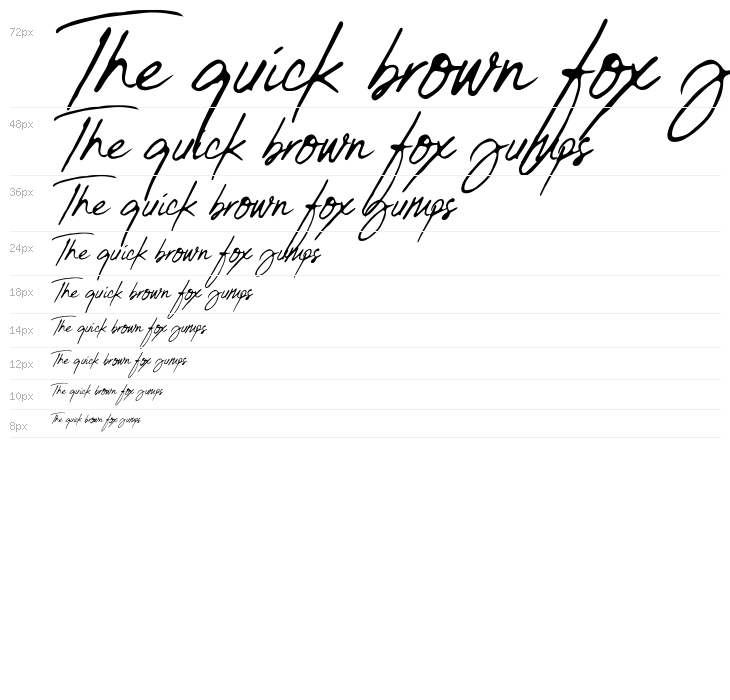 72px The quick brown fox j
48px The quick brown fox jumps
36px The quick brown fox jumps
24px The quick brown fox jumps
18px The quick brown fox jumps
14px The quick brown fox jumps
12px The quick brown fox jumps
10px The quick brown fox jumps
8px The quick brown fox jumps